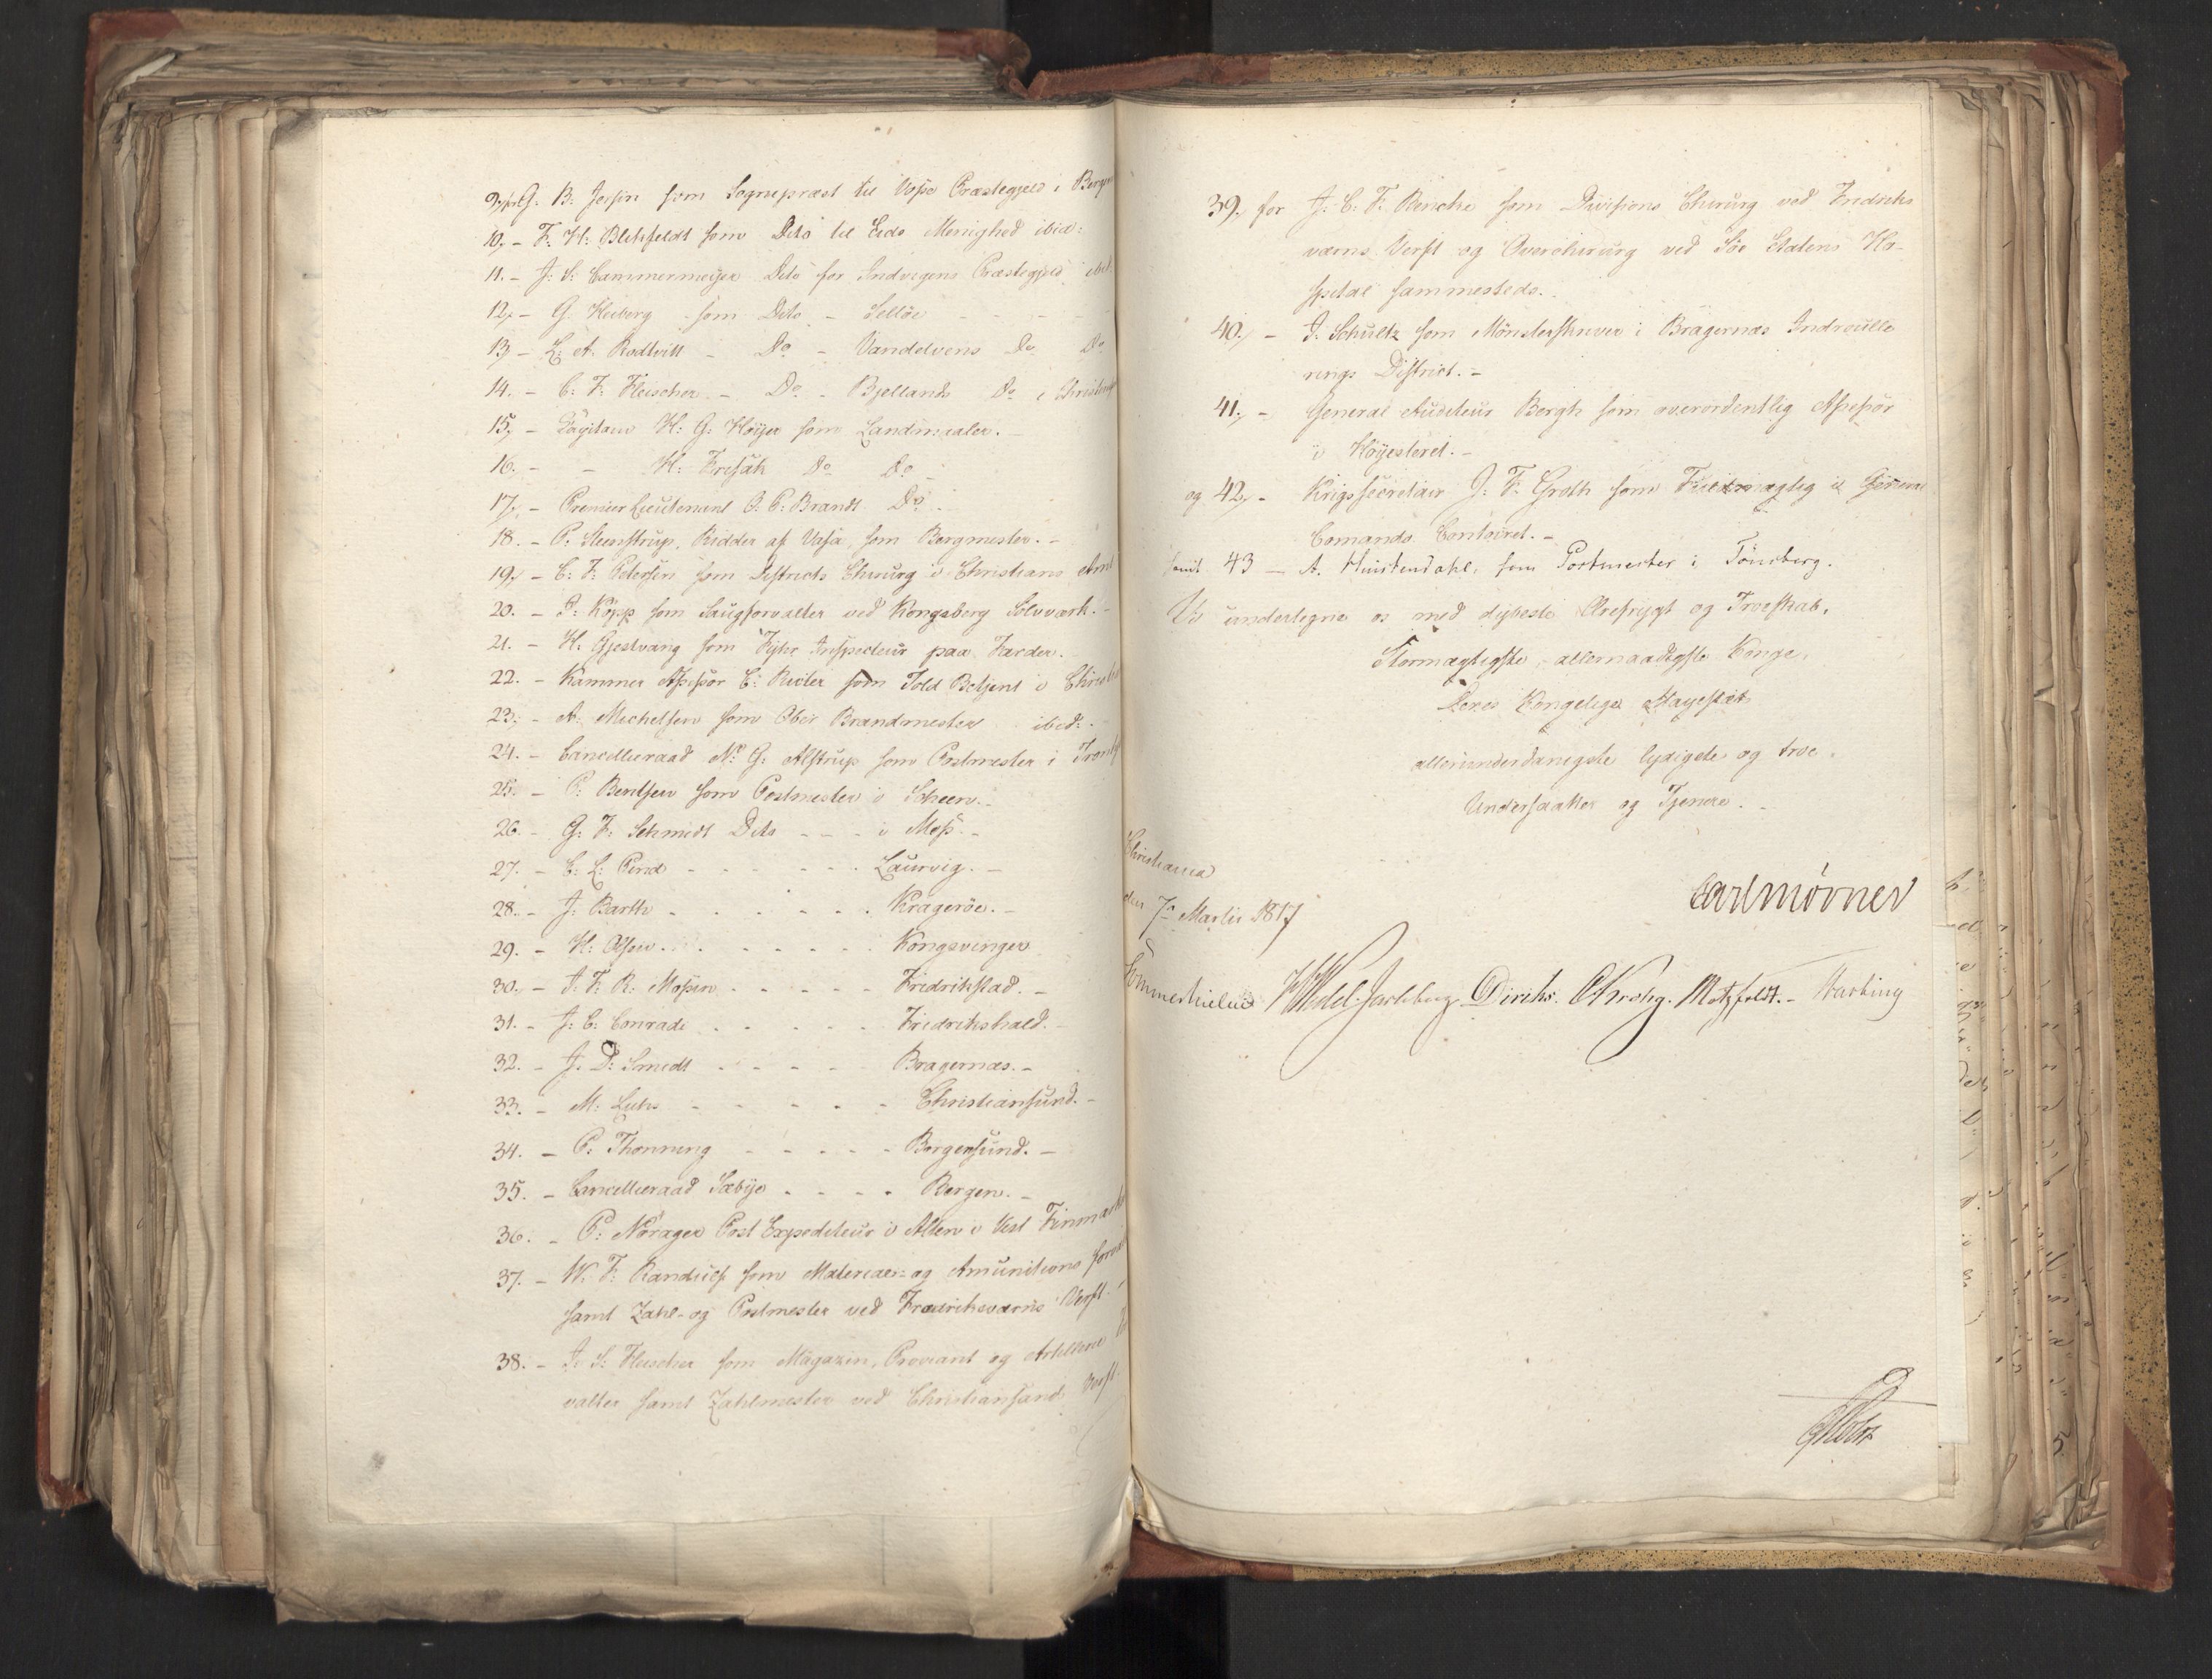 9, for G: B: Jersin som Sognepræst til Voss Præstegjeld i Bergen
10, - F. H: Blikfeldt som Dito til Eids Menighed ibid:
11. - J: S: Cammermeyer Dito for Indvigens Præstegjeld ibid:
12, - G. Heiberg - som Dito - Selløe - - -
13, - L: A. Rodtvitt - Do - Vandelvens Do Do
14. - C: F: Fleischer. - Do. - Bjellands Do i Christians
15, - Capitain H: G: Høyer som Landmaaler. -
16. - - H: Frisak Do Do -
17, - Premier Lieutenant O. P: Brandt Do -
18. - P. Steenstrup, Ridder af Vasa, som Bergmester. -
19, - C: F: Petersen som Districts Chirurg i Christians Amt
20. - P: Kopp som Saugforvalter ved Kongsberg Sølvværk. -
21. - H. Gjestvang som Fyhr Inspecteur paa Færder. -
22. - Kammer Assessor C: som Told Betjent i Christia
23, - A. Michelsen som Ober Brandmester ibid: -
24. - Cancellieraad N: G: Alstrup som Postmester i Trondh
25. - P. Bentsen som Postmester i Scheen. -
26. - G: F: Schmidt Dito - - - i Moss. -
27. - C: L: - - - - - Laurvig. -
28. - J: Barth - - - - - Kragerøe. -
29. - H: Olsen - - - - - Kongsvinger
30. - F: R: - - - - - Fridrikstad. -
31. - J: C: Conradi - - - - - Fridrikshald. -
32. - J. D: Smidt - - - - - Bragernæs. -
33. - M: - - - - - Christiansund. -
34. - P: Thonning - - - - - Borgersund. -
35. - Cancellieraad Sæbye - - - - Bergen. -
36. - P: Norager Post Expediteur i Alten i Vest Finmark
37. - W. F: Randulf som Material- og Amunitions forval
samt Zahl- og Postmester ved Fredriksværns Verft -
38. - J. S: Fleischer som Magazin, Proviant og Artillerie
valter samt Zahlmester ved Christiansands Verft
39, for J: C: F. Reincke som Divisions Chirurg ved Fridriks
værns Verft og Overchirurg ved Søe Etatens Ho-
spital sammesteds. -
40, - J. Schultz som Mønsterskriver i Bragernæs Indroulle
rings District. -
41, - General Auditeur Bergh som overordentlig Assessor
i Høyesteret. -
og 42, - Krigssecretair J: F. Groth som Fuldmægtig i General
Comando Contoiret. -
samt 43 - A. Huitfendahl, som Postmester i Tønsberg.
Vi undertegne os med dybeste Ærefrygt og Troeskab,
Stormægtigste, allernaadigste Konge,
Deres Kongelige Mayestæts
allerunderdanigste lydigste og troe
Undersaatter og Tjenere. -
Christiania
den 7de Martii 1817
Carl Mörner
Sommerhielm HWedel-Jarlsberg Diriks. CKrohg. Motzfeldt. - Harbing